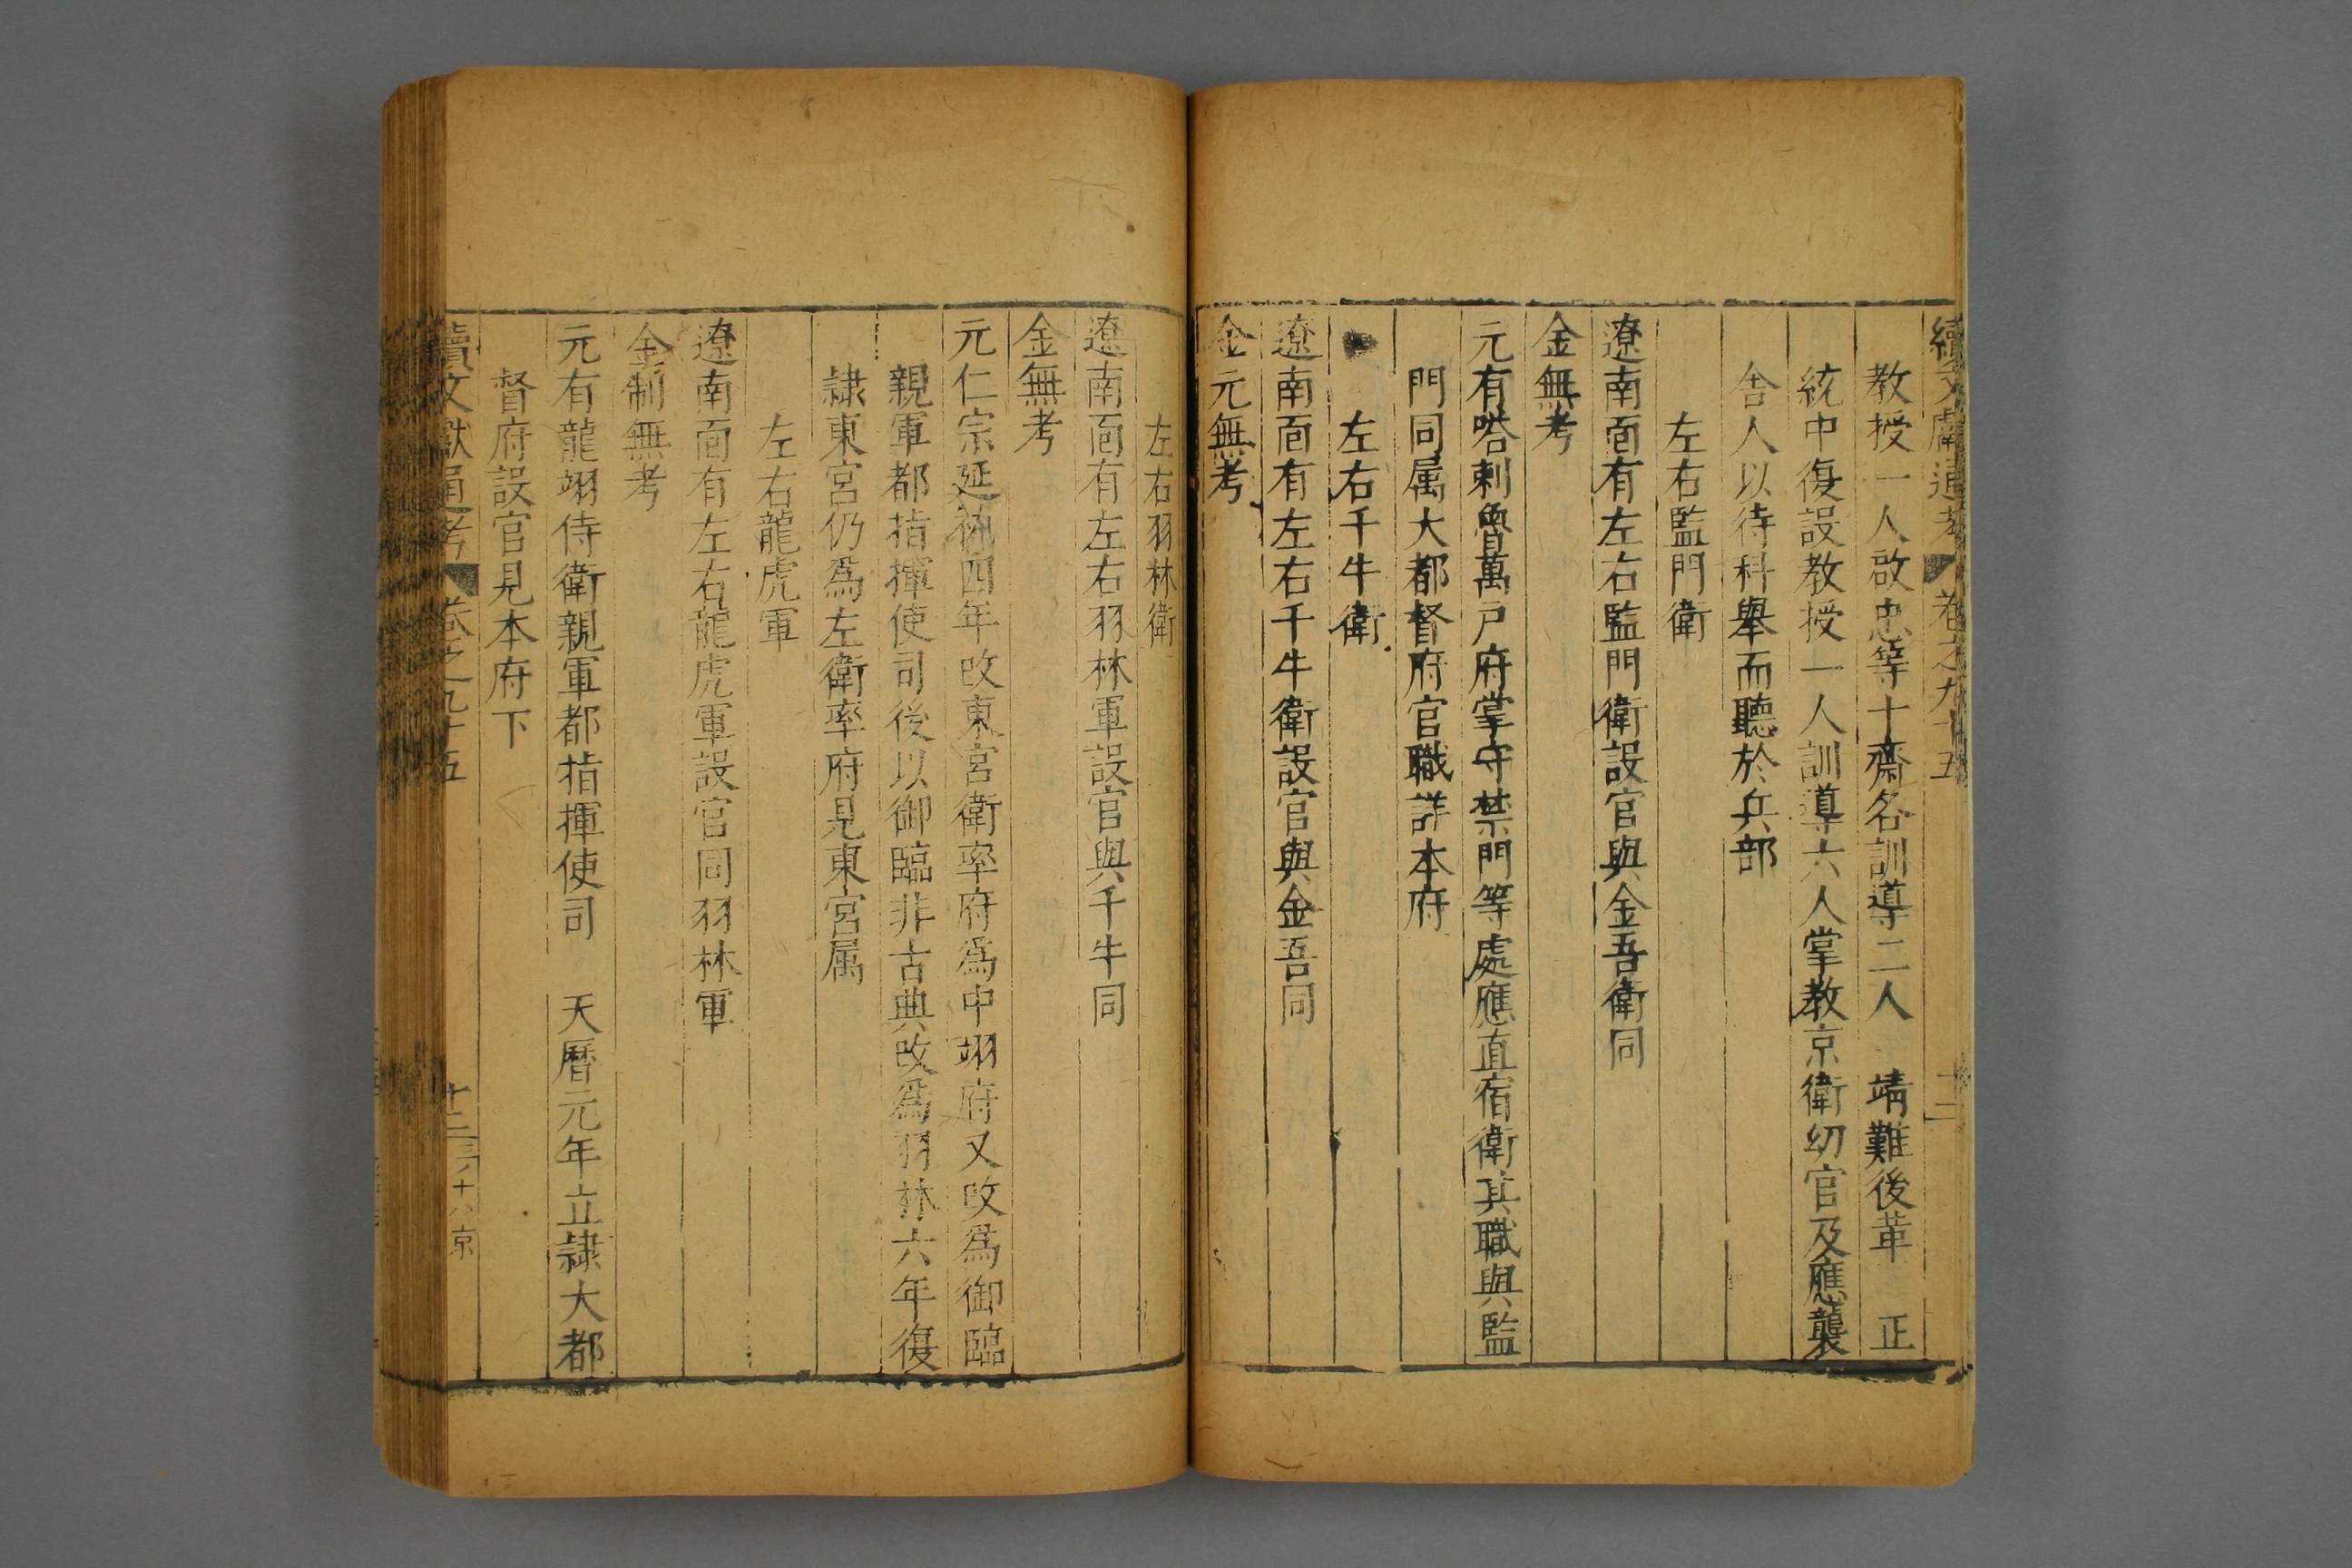 續文獻通考 卷之九十五 十二
教授一人啟忠等十齋名訓導二人 靖難後革 正
統中復設教授一人訓導六人掌教京衛幼官及應襲
舎人以待科舉而聽於兵部
左右監門衛
遼南面有左右監門衛設官與金吾衛同
金無考
元有嗒剌魯萬戸府掌守禁門等處應直宿衛其職與監
門同属大都督府官職詳本府
左右千牛衛
遼南面有左右千牛衛設官與金吾同
金元無考
左右羽林衛
遼南面有左右羽林軍設官與千牛同
金無考
元仁宗延祐四年改東宮衛率府爲中翊府又改爲御臨
親軍都指揮使司後以御臨非古典改爲羽林六年復
隷東宮仍爲左衛率府見東宮属
左右龍虎軍
遼南面有左右龍虎軍設官同羽林軍
金制無考
元有龍翊侍衛親軍都指揮使司 天曆元年立隷大都
督府設官見本府下
續文獻通考 卷之九十五 十二 三ノ十八 京